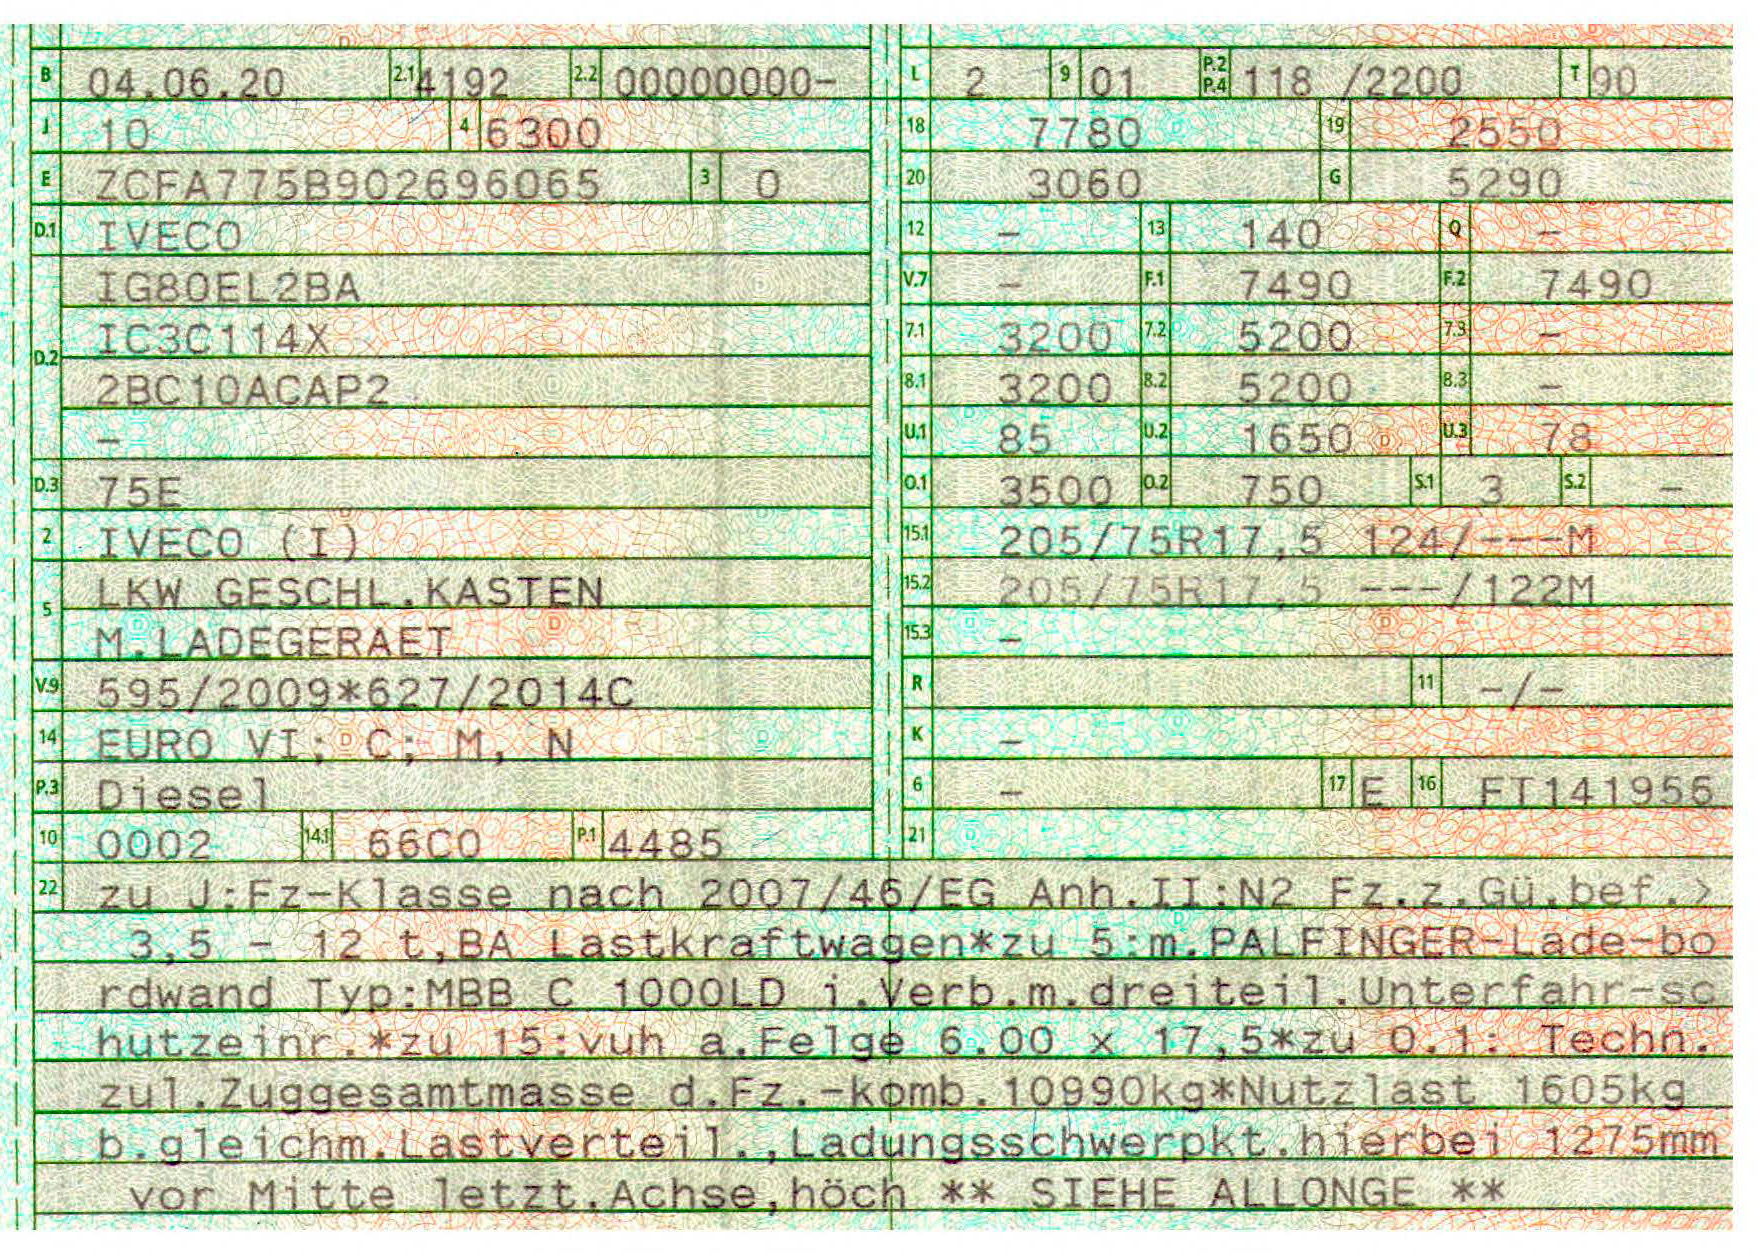 B 04.06.20 2.1 4192 2.2 00000000-
J 10 4 6300
E ZCFA775B902696065 3 0
D.1 IVECO
IG80EL2BA
D.2 IC3C114X
2BC10ACAP2
-
D.3 75E
2 IVECO (I)
5 LKW GESCHL.KASTEN
M.LADEGERAET
V.9 595/2009*627/2014C
14 EURO VI; C; M, N
P.3 Diesel
10 0002 14.1 66C0 P.1 4485
L 2 9 01 P.2 P.4 118 /2200 T 90
18 7780 19 2550
20 3060 G 5290
12 - 13 140 Q -
V.7 - F.1 7490 F.2 7490
7.1 3200 7.2 5200 7.3 -
8.1 3200 8.2 5200 8.3 -
U.1 85 U.2 1650 U.3 78
O.1 3500 O.2 750 S.1 3 S.2 -
15.1 205/75R17,5 124/---M
15.2 205/75R17,5 ---/122M
15.3 -
R 11 -/-
K -
6 - 17 E 16 FT141956
21
22 zu J:Fz-Klasse nach 2007/46/EG Anh.II:N2 Fz.z.Gü.bef.>
3,5 - 12 t,BA Lastkraftwagen*zu 5:m.PALFINGER-Lade-bo
rdwand Typ:MBB C 1000LD i.Verb.m.dreiteil.Unterfahr-sc
hutzeinr.*zu 15:vuh a.Felge 6.00 x 17,5*zu O.1: Techn.
zul.Zuggesamtmasse d.Fz.-komb.10990kg*Nutzlast 1605kg
b.gleichm.Lastverteil.,Ladungsschwerpkt.hierbei 1275mm
vor Mitte letzt.Achse,höch ** SIEHE ALLONGE **